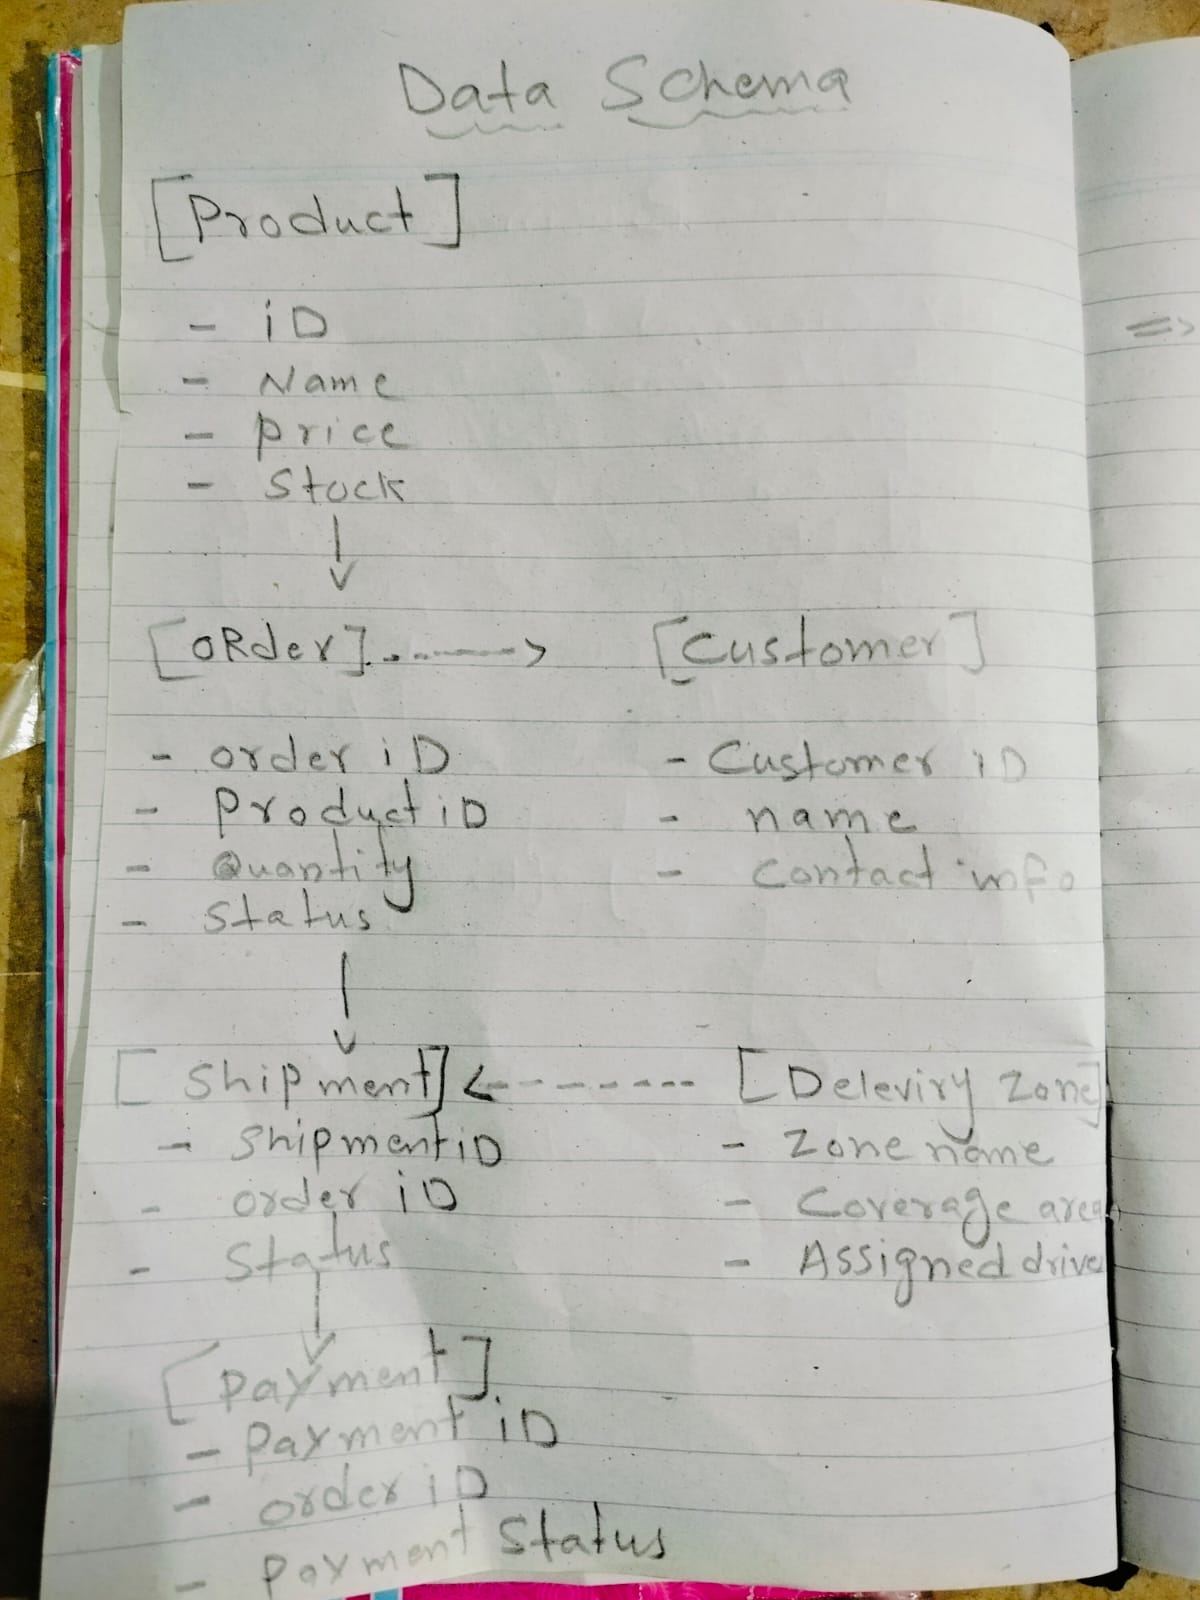 Data Schema
[Product]
- iD
- Name
- Price
- Stock
↓
[oRder] ------> [Customer]
- order iD
- Product iD
- Quantity
- Status
- Customer iD
- name
- Contact info
↓
[Shipment] <------- [Deleviry Zone]
- Shipment iD
- order iD
- Status
- Zone name
- Coverage area
- Assigned drive
↓
[Payment]
- Payment iD
- order iD
- Payment Status
=>